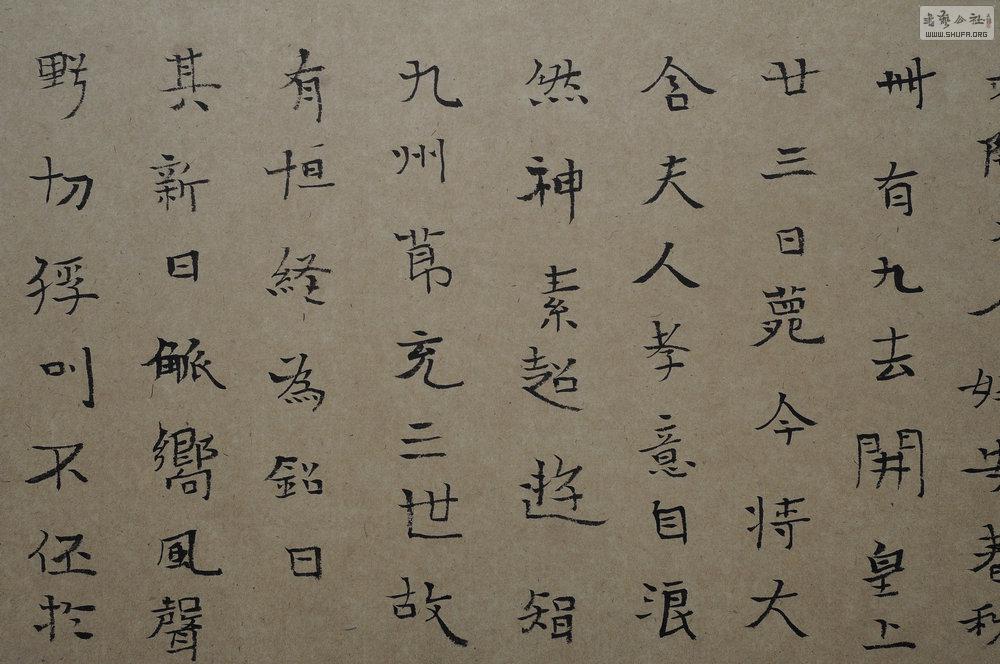 書藝公社
WWW.SHUFA.ORG
人
春
卌有九去開皇上
廿三日薨今将大
含夫人孝意自浪
然神素超遊
九州莭充三世故
有恒経為鉛日
其新日嚮風聲
野切叫不於